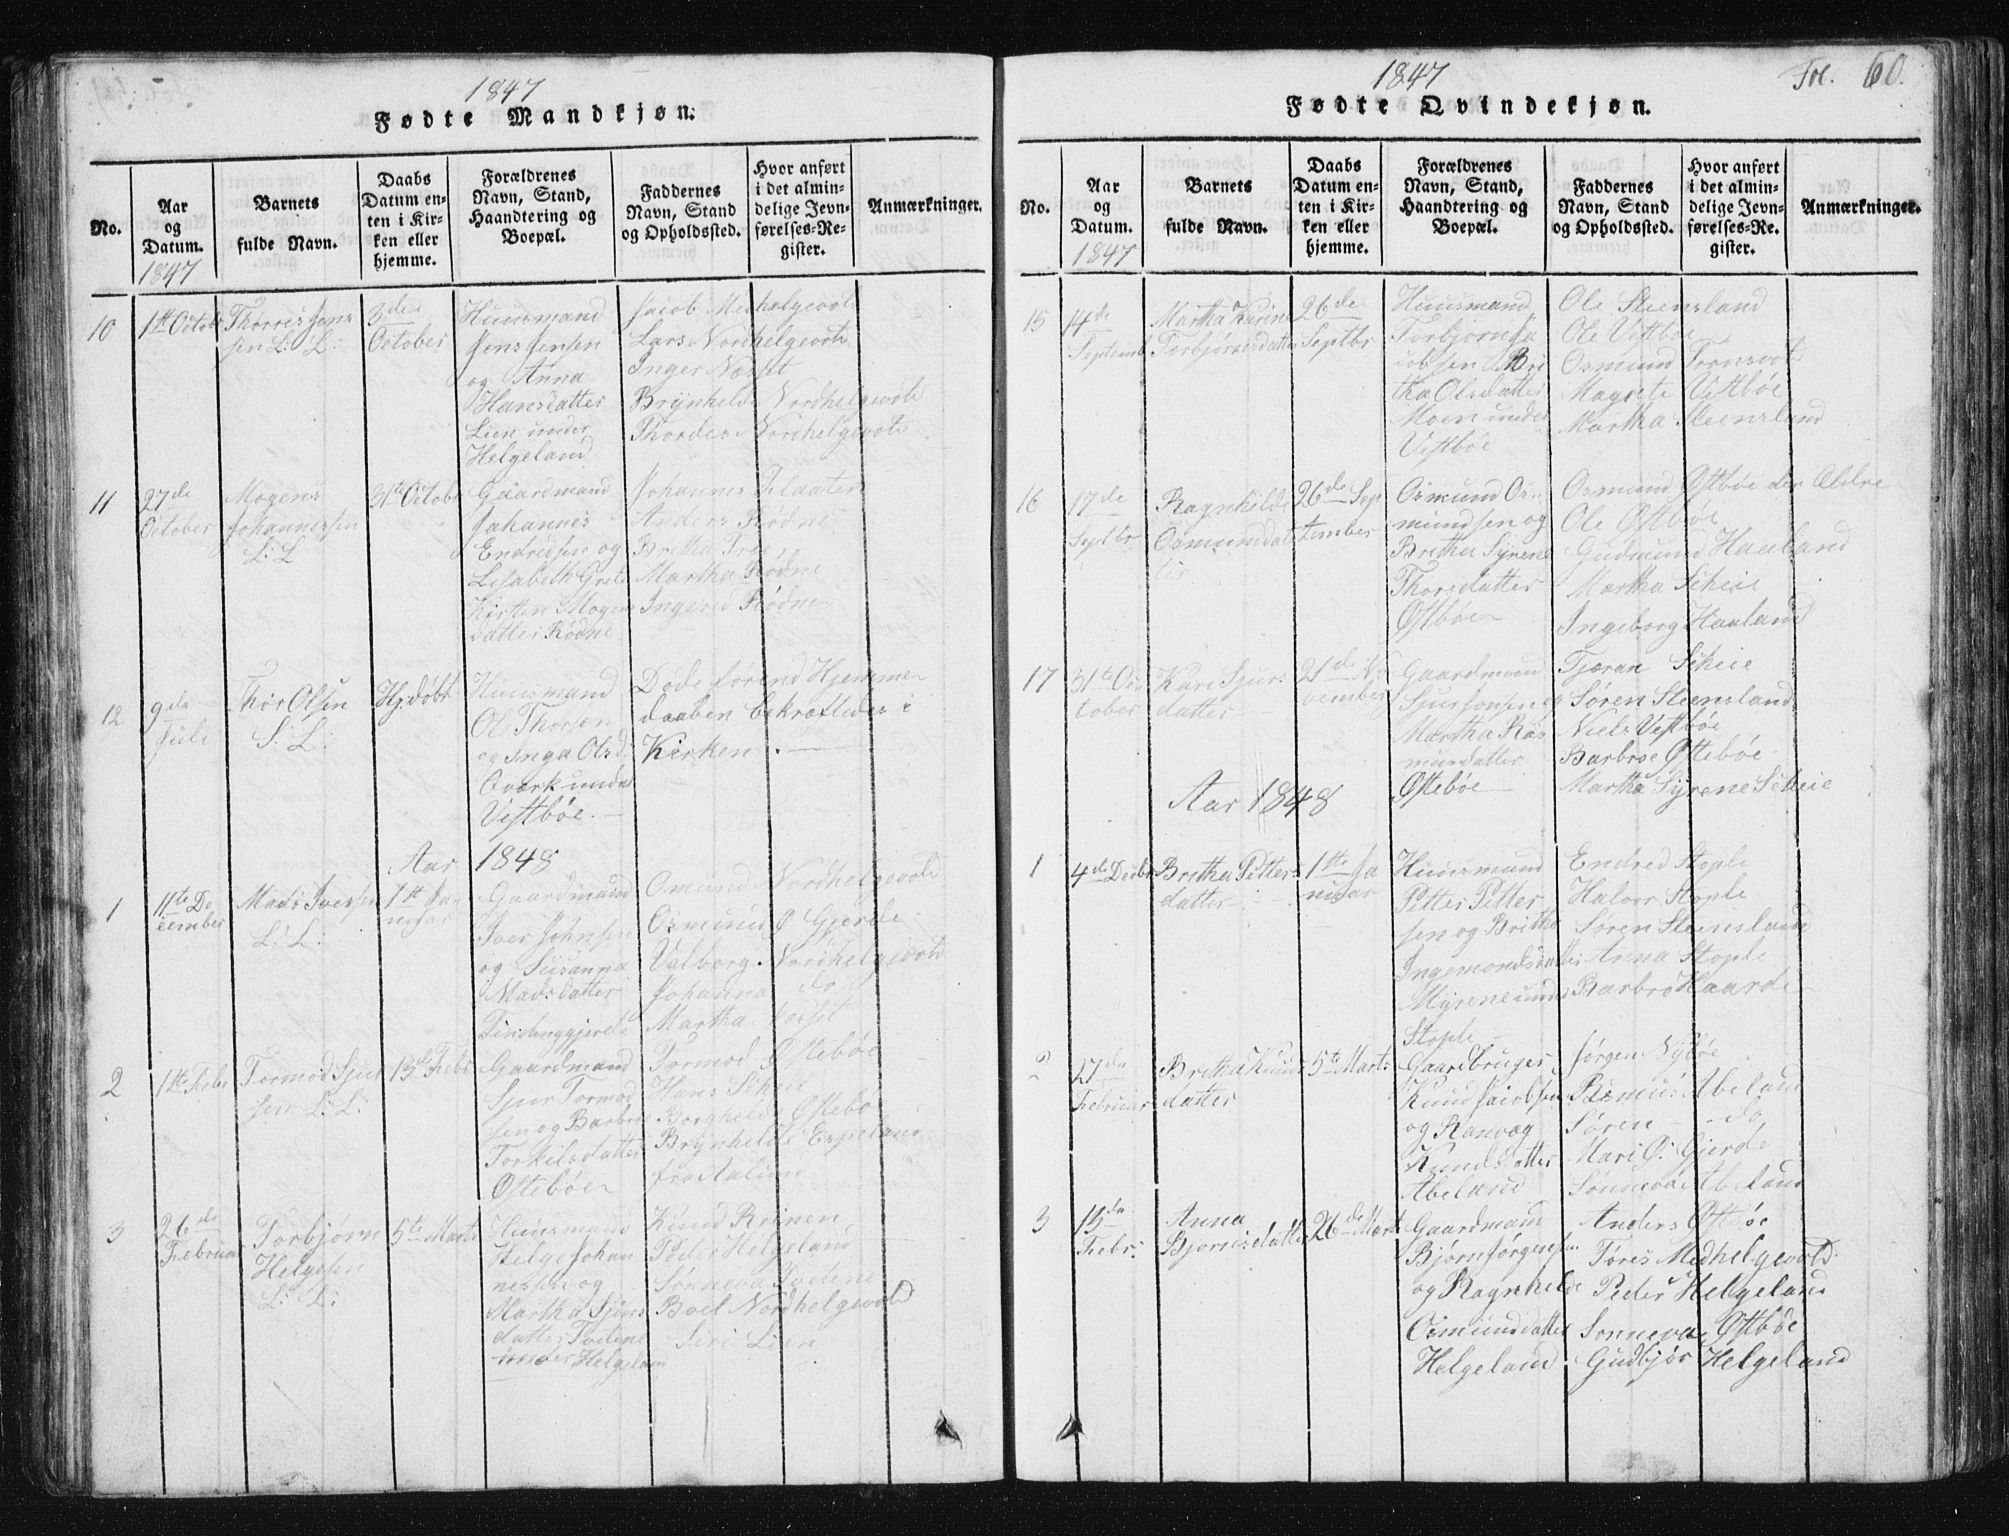 1847
Fødte Mandkjøn.
No.
Aar
og
Datum.
1847
Barnets
fulde Navn.
Daabs
Datum en-
ten i Kir-
ken eller
hjemme.
Forældrenes
Navn, Stand,
Haandtering og
Boepæl.
Faddernes
Navn, Stand
og Opholdssted.
Hvor anført
i det almin-
delige Jevn-
førelses-Re-
gister.
Anmærkninger.
10
1ste Octobr
Thorres Jens
sen L: L:
3die
October
Huusmand
Jens Jensen
og Anna
Hansdatter
Lien under
Helgeland
Jacob Medhelgevold
Lars Nordhelgevold
Inger Næsset
Brynhilde Nordhelgevold
Thordes Nordhelgevold
11
27de
October
Mogens
Johannessen
L: L
31te October
Gaardmand
Johannes
Endredsen og
Lisabeth Grete
Kirsten Mogens
datter Rødne
Johannes
Anders Rødne
Britha
Martha Rødne
Ingered Rødne
12
9de
Juli
Thor Olsen
S: L:
Hj: døbt
Huusmand
Ole Thorsen
og Inga Olsd:
Qvark under
Vestbøe.
Døde førend Hjemme
daaben bekræftedes i
Kirken.
Aar 1848
1
11te De
cember
Mads Iversen
L: L:
1ste Ja-
nuar
Gaardmand
Iver Johnsen
og Susanna
Madsdatter
Osmund Nordhelgevold
Osmund Ø Gjerde
Valborg Nordhelgevold
Johanna do
Martha Næsset
2
1ste Febr
Tormod Sjur
sen L: L:
13de Febr
Gaardmand
Sjur Tormod
sen og Barbroe
Torkilsdatter
Østebøe
Tormod Østebøe
Hans Scheie
Borghilde Østebø
Brynhilde Espeland
fra
3
26de
Februar
Torbjørn
Helgesen
L: L:
5te Marts
Huusmand
Helge Johan
nessen og
Martha Sjurs
datter Tvetene
under Helgeland
Knud Reinen
Peder Helgeland
Sønneva Tvetene
Boel Nordhelgevold
Siri Lien
1847
Fol. 60.
Fødte Qvindekjøn.
No.
Aar
og
Datum.
1847
Barnets
fulde Navn.
Daabs
Datum en-
ten i Kir-
ken eller
hjemme.
Forældrenes
Navn, Stand,
Haandtering og
Boepæl.
Faddernes
Navn, Stand
og Opholdssted.
Hvor anført
i det almin-
delige Jevn-
førelses-Re-
gister.
Anmærkninger.
15
14de
Septemb
Martha Karine
Torbjørnsdatter
26de
Septbr
Huusmand
Torbjørn Ja
cobsen Bri
tha Olsdatter
Moen under
Vestbøe
Ole Steensland
Ole Vestbøe
Osmund Tronsvold
Magrete Vestbøe
Martha Steensland
16
17de
Septbr
Ragnhilde
Osmundsdat
ter
26de Sep
tember
Osmund Os-
mundsen og
Britha Syrene
Thorsdatter
Østbøe
Osmund Østbøe den Ældre
Ole Østbøe
Gudmund Haaland
Martha Scheie
Ingeborg Haaland
17
31te Oc
tober
Kari Sjurs
datter
21de No
vember
Gaardmand
Sjur Jonsen og
Martha Ras
musdatter
Østebøe
Tjæran Scheie
Søren Steensland
Niels Vestbøe
Barbroe Østebøe
Martha Syrene Scheie
Aar 1848
1
4de Decbr
Britha Petters
datter
1ste Ja
nuar
Huusmand
Petter Petter
sen og Britha
Ingemondsdatter
Myrene under
Stople
Endred Stople
Halvor Stople
Søren Steensland
Anna Stople
Barbro Haarde
2
27de
Februar
Britha Knuds
datter
5te Marts
Gaardbruger
Knud Jacobsen
og Ranvæg
Knudsdatter
Abeland
Jørgen Nybøe
Rasmus Abeland
Søren do
Mari Ø: Gjerde
Sønnevae Abeland
3
13de
Febr:
Anna
Bjørnsdatter
26de Marts
Gaardmand
Bjørn Jørgensen
og Ragnhilde
Osmundsdatter
Helgeland
Anders Østbøe
Tøres Medhelgevold
Peder Helgeland
Sonneva Østbøe
Gudbjør Helgeland